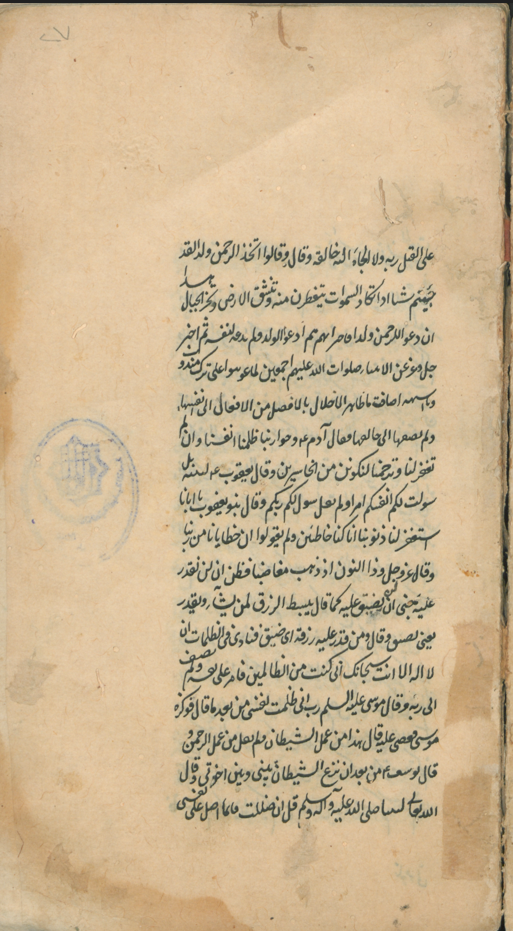 على القتل ربه ولا الجاء اله خالقه وقال وقالوا اتخذ الرحمن ولدا لقد
جئتم شيئا ادا تكاد السموات يتفطرن منه وتنشق الارض وتخر الجبال هدا
ان دعوا للرحمن ولدا فاخبر انهم هم ادعوا الولد ولم يدعه لنفسه ثم اخبر
جل وعز عن الانبياء صلوات الله عليهم اجمعين لما عوتبوا على ترك مندوب
وما اضافة ما ظاهره الاخلال بالافضل من الافعال الى انفسها
ولم يضفها الى خالقها فقال آدم ع وحوا ربنا ظلمنا انفسنا وان لم
تغفر لنا وترحمنا لنكونن من الخاسرين وقال يعقوب ع لبنيه بل
سولت لكم انفسكم امرا ولم يقل سول لكم ربكم وقال بنو يعقوب يا ابانا
استغفر لنا ذنوبنا انا كنا خاطئين ولم يقولوا ان خطايانا من ربنا
وقال عز وجل وذا النون اذ ذهب مغاضبا فظن ان لن نقدر
عليه بمعنى ان يضيق عليه كما قال يبسط الرزق لمن يشاء ويقدر
يعني يضيق وقال ومن قدر عليه رزقه اى ضيق فنادى فى الظلمات ان
لا اله الا انت سبحانك انى كنت من الظالمين فاقر على نفسه ولم يضف
الى ربه وقال موسى عليه السلم رب انى ظلمت نفسى من بعد ما قال فوكزه
موسى فقضى عليه قال هذا من عمل الشيطان ولم يقل من عمل الرحمن و
قال يوسف ع من بعد ان نزغ الشيطان بينى وبين اخوتى وقال
الله تعالى لنبينا صلى الله عليه وآله وسلم قل ان ضللت فانما اضل على نفسى